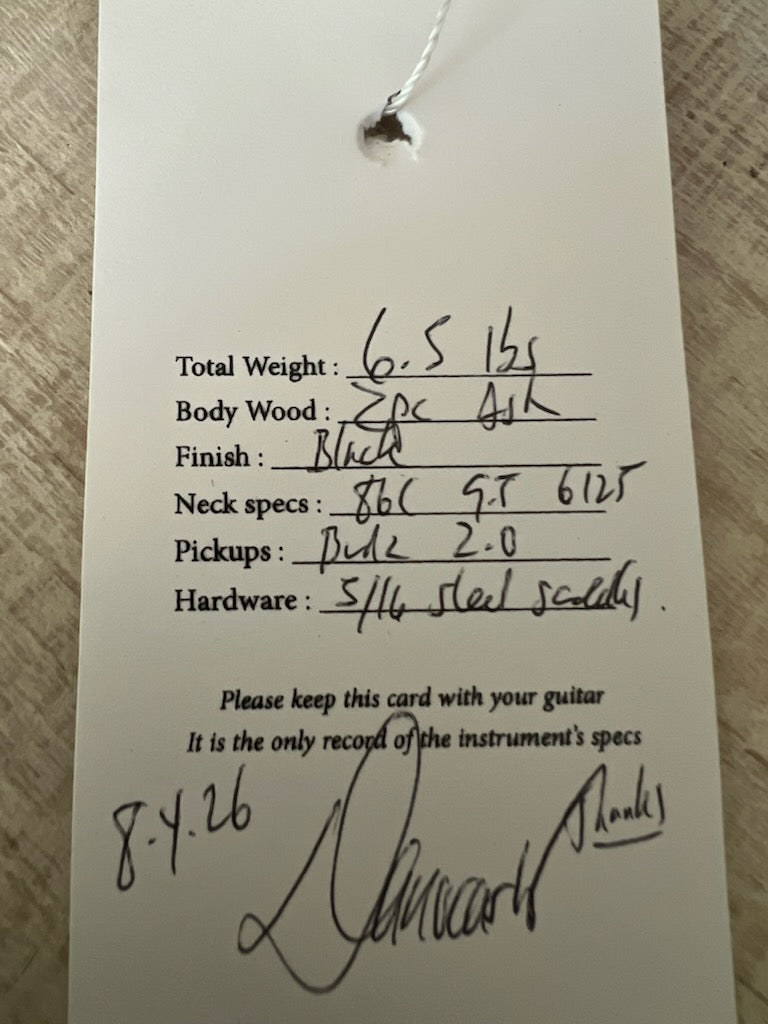 Total Weight : 6.5 lbs
Body Wood : 2pc Ash
Finish : Black
Neck specs : 86C 9.5 6125
Pickups : 2.0
Hardware : 5/16 steel saddles.
Please keep this card with your guitar
It is the only record of the instrument's specs
8.4.26
Thanks
Danocaster